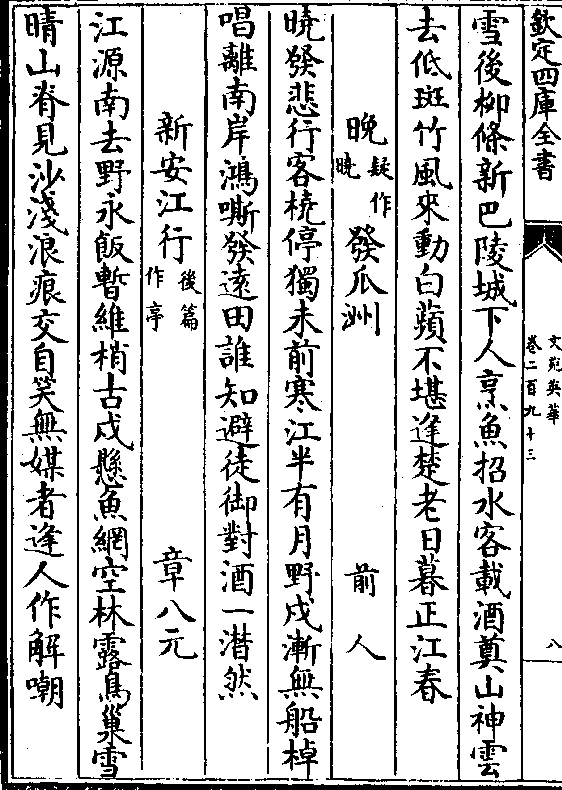 欽定四庫全書
文苑英華
卷二百九十三
八
雪後柳條新巴陵城下人烹魚招水客載酒奠山神雲
去低斑竹風來動白蘋不堪逢楚老日暮正江春
晚疑作曉發瓜洲 前人
曉發悲行客橈停獨未前寒江半有月野戍漸無船棹
唱離南岸鴻嘶發遠田誰知避徒御對酒一潸然
新安江行後篇作亭 章八元
江源南去野永飯暫維梢古戍懸魚網空林露鳥巢雪
晴山脊見沙淺浪痕交自笑無媒者逢人作解嘲